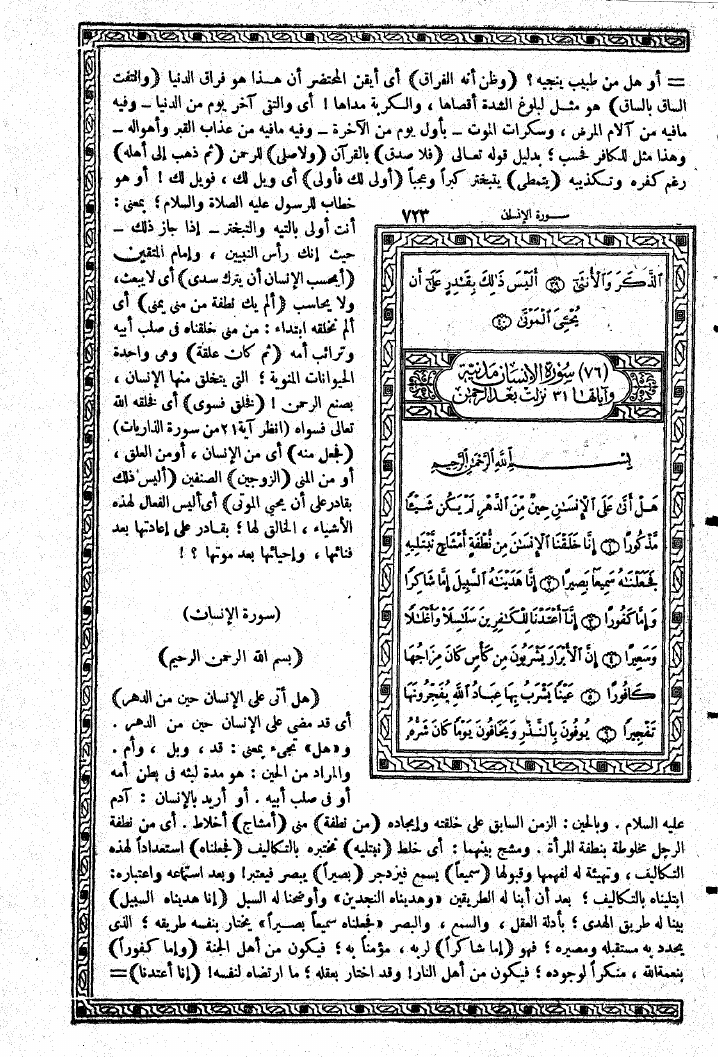 = أو هل من طبيب ينجيه؟ (وظن أنه الفراق) أى أيقن المحتضر أن هذا هو فراق الدنيا (والتفت
الساق بالساق) هو مثل لبلوغ الشدة أقصاها، والكربة مداها! أى والتقى آخر يوم من الدنيا ــ وفيه
مافيه من آلام المرض، وسكرات الموت ــ بأول يوم من الآخرة ــ وفيه مافيه من عذاب القبر وأهواله ــ
وهذا مثل للكافر فحسب؛ بدليل قوله تعالى (فلا صدق) بالقرآن (ولاصلى) للرحمن (ثم ذهب إلى أهله)
رغم كفره وتكذيبه (يتمطى) يتبختر كبراً وعجباً (أولى لك فأولى) أى ويل لك، فويل لك! أو هو
خطاب للرسول عليه الصلاة والسلام؛ بمعنى:
أنت أولى بالتيه والتبختر ــ إذا جاز ذلك ــ
حيث إنك رأس النبيين، وإمام المتقين
(أيحسب الإنسان أن يترك سدى) أى لا يبعث،
ولا يحاسب (ألم يك نطفة من منى يمنى) أى
ألم نخلقه ابتداء: من منى خلقناه فى صلب أبيه
وترائب أمه (ثم كان علقة) وهى واحدة
الحيوانات المنوية؛ التى يتخلق منها الإنسان،
بصنع الرحمن! (فخلق فسوى) أى فخلقه الله
تعالى فسواه (انظر آية ٢١ من سورة الذاريات)
(فجعل منه) أى من الإنسان، أو من العلق،
أو من المنى (الزوجين) الصنفين (أليس ذلك
بقادر على أن يحيي الموتى) أى أليس الفعال لهذه
الأشياء، الخالق لها؛ بقادر على إعادتها بعد
فنائها، وإحيائها بعد موتها؟!
(سورة الإنسان)
(بسم الله الرحمن الرحيم)
(هل أتى على الإنسان حين من الدهر)
أى قد مضى على الإنسان حين من الدهر.
و«هل» تجىء بمعنى: قد، وبل، وأم.
والمراد من الحين: هو مدة لبثه فى بطن أمه
أو فى صلب أبيه. أو أريد بالإنسان: آدم
سورة الإنسان ٧٢٣
ٱلذَّكَرَ وَٱلْأُنثَىٰٓ ﴿٣٩﴾ أَلَيْسَ ذَٰلِكَ بِقَـٰدِرٍ عَلَىٰٓ أَن
يُحْـِۧىَ ٱلْمَوْتَىٰ ﴿٤٠﴾
(٧٦) سورة الإنسان مدنية
وآياتها ٣١ نزلت بعد الرحمن
بِسْمِ ٱللَّهِ ٱلرَّحْمَـٰنِ ٱلرَّحِيمِ
هَلْ أَتَىٰ عَلَى ٱلْإِنسَـٰنِ حِينٌ مِّنَ ٱلدَّهْرِ لَمْ يَكُن شَيْـًٔا
مَّذْكُورًا ﴿١﴾ إِنَّا خَلَقْنَا ٱلْإِنسَـٰنَ مِن نُّطْفَةٍ أَمْشَاجٍ نَّبْتَلِيهِ
فَجَعَلْنَـٰهُ سَمِيعًۢا بَصِيرًا ﴿٢﴾ إِنَّا هَدَيْنَـٰهُ ٱلسَّبِيلَ إِمَّا شَاكِرًا
وَإِمَّا كَفُورًا ﴿٣﴾ إِنَّآ أَعْتَدْنَا لِلْكَـٰفِرِينَ سَلَـٰسِلَا۟ وَأَغْلَـٰلًا
وَسَعِيرًا ﴿٤﴾ إِنَّ ٱلْأَبْرَارَ يَشْرَبُونَ مِن كَأْسٍ كَانَ مِزَاجُهَا
كَافُورًا ﴿٥﴾ عَيْنًا يَشْرَبُ بِهَا عِبَادُ ٱللَّهِ يُفَجِّرُونَهَا
تَفْجِيرًا ﴿٦﴾ يُوفُونَ بِٱلنَّذْرِ وَيَخَافُونَ يَوْمًا كَانَ شَرُّهُۥ
عليه السلام. وبالحين: الزمن السابق على خلقته وإيجاده (من نطفة) منى (أمشاج) أخلاط. أى من نطفة
الرجل مخلوطة بنطفة المرأة. ومشج بينهما: أى خلط (نبتليه) نختبره بالتكاليف (فجعلناه) استعداداً لهذه
التكاليف، وتهيئة له لفهمها وقبولها (سميعاً) يسمع فيزدجر (بصيراً) يبصر فيعتبر! وبعد استماعه واعتباره:
ابتليناه بالتكاليف؛ بعد أن أبنا له الطريقين «وهديناه النجدين» وأوضحنا له السبل (إنا هديناه السبيل)
بينا له طريق الهدى؛ بأدلة العقل، والسمع، والبصر «فجعلناه سميعاً بصيراً» يختار بنفسه طريقه؛ الذى
يحدد به مستقبله ومصيره؛ فهو (إما شاكراً) لربه، مؤمناً به؛ فيكون من أهل الجنة (وإما كفوراً)
بنعمة الله، منكراً لوجوده؛ فيكون من أهل النار! وقد اختار بعقله؛ ما ارتضاه لنفسه! (إنا أعتدنا) =